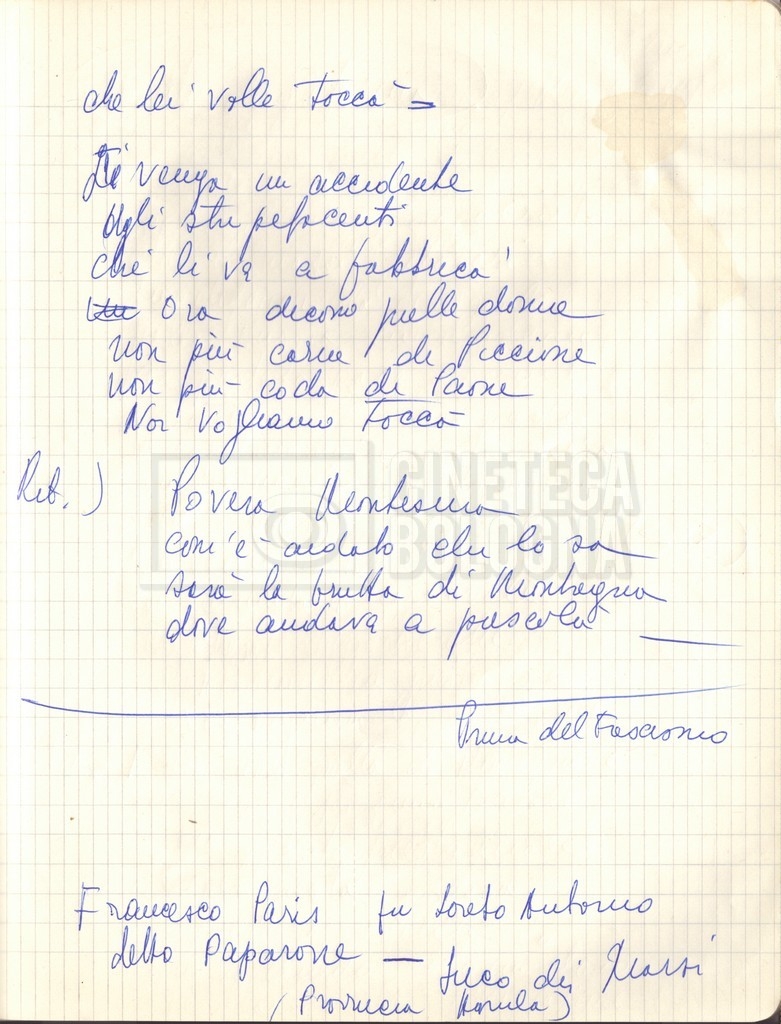 che lei volle toccà –
Ti venga un accidente
agli stupefacenti
che li va a fabbricà
Ora dicono quelle donne
non più carne di Piccione
non più coda di Paone
Noi Vogliamo toccà
Rit. ) Povera
com'è andato chi lo sa
sarà la frutta di Montagna
dove andava a pascolà
CINETECA
BOLOGNA
Prima del Fascismo
Francesco Paris fu Loreto Antonio
detto Paparone — Luco dei Marsi
(Provincia Aquila)